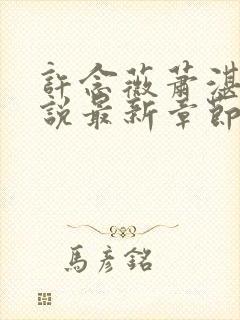 許念薇蕭湛
說最新章節
馬彥銘